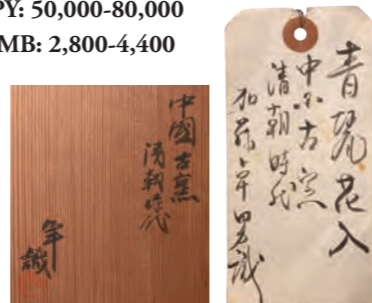 PY: 50,000-80,000
MB: 2,800-4,400
中國古窯
清朝時代
識
青瓷花入
中国古窯
清朝時代
加藤卓男識